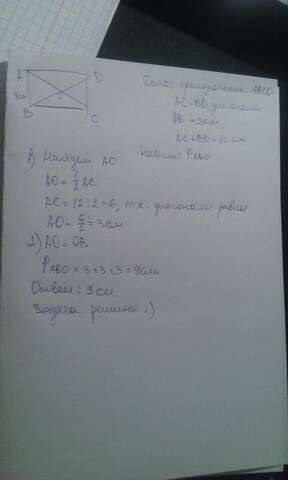 A D
3см O
B C
Дано: прямоугольник ABCD
AC и BD диагонали
AB = 3см
AC+BD = 12 см
Найти: P ABO
1) Найдем AO
AO = 1/2 AC
AC = 12 : 2 = 6, т.к. диагонали равны
AO = 6/2 = 3 см
2) AO = OB
P ABO = 3+3+3 = 9см
Ответ: 9 см.
Задача решена :)